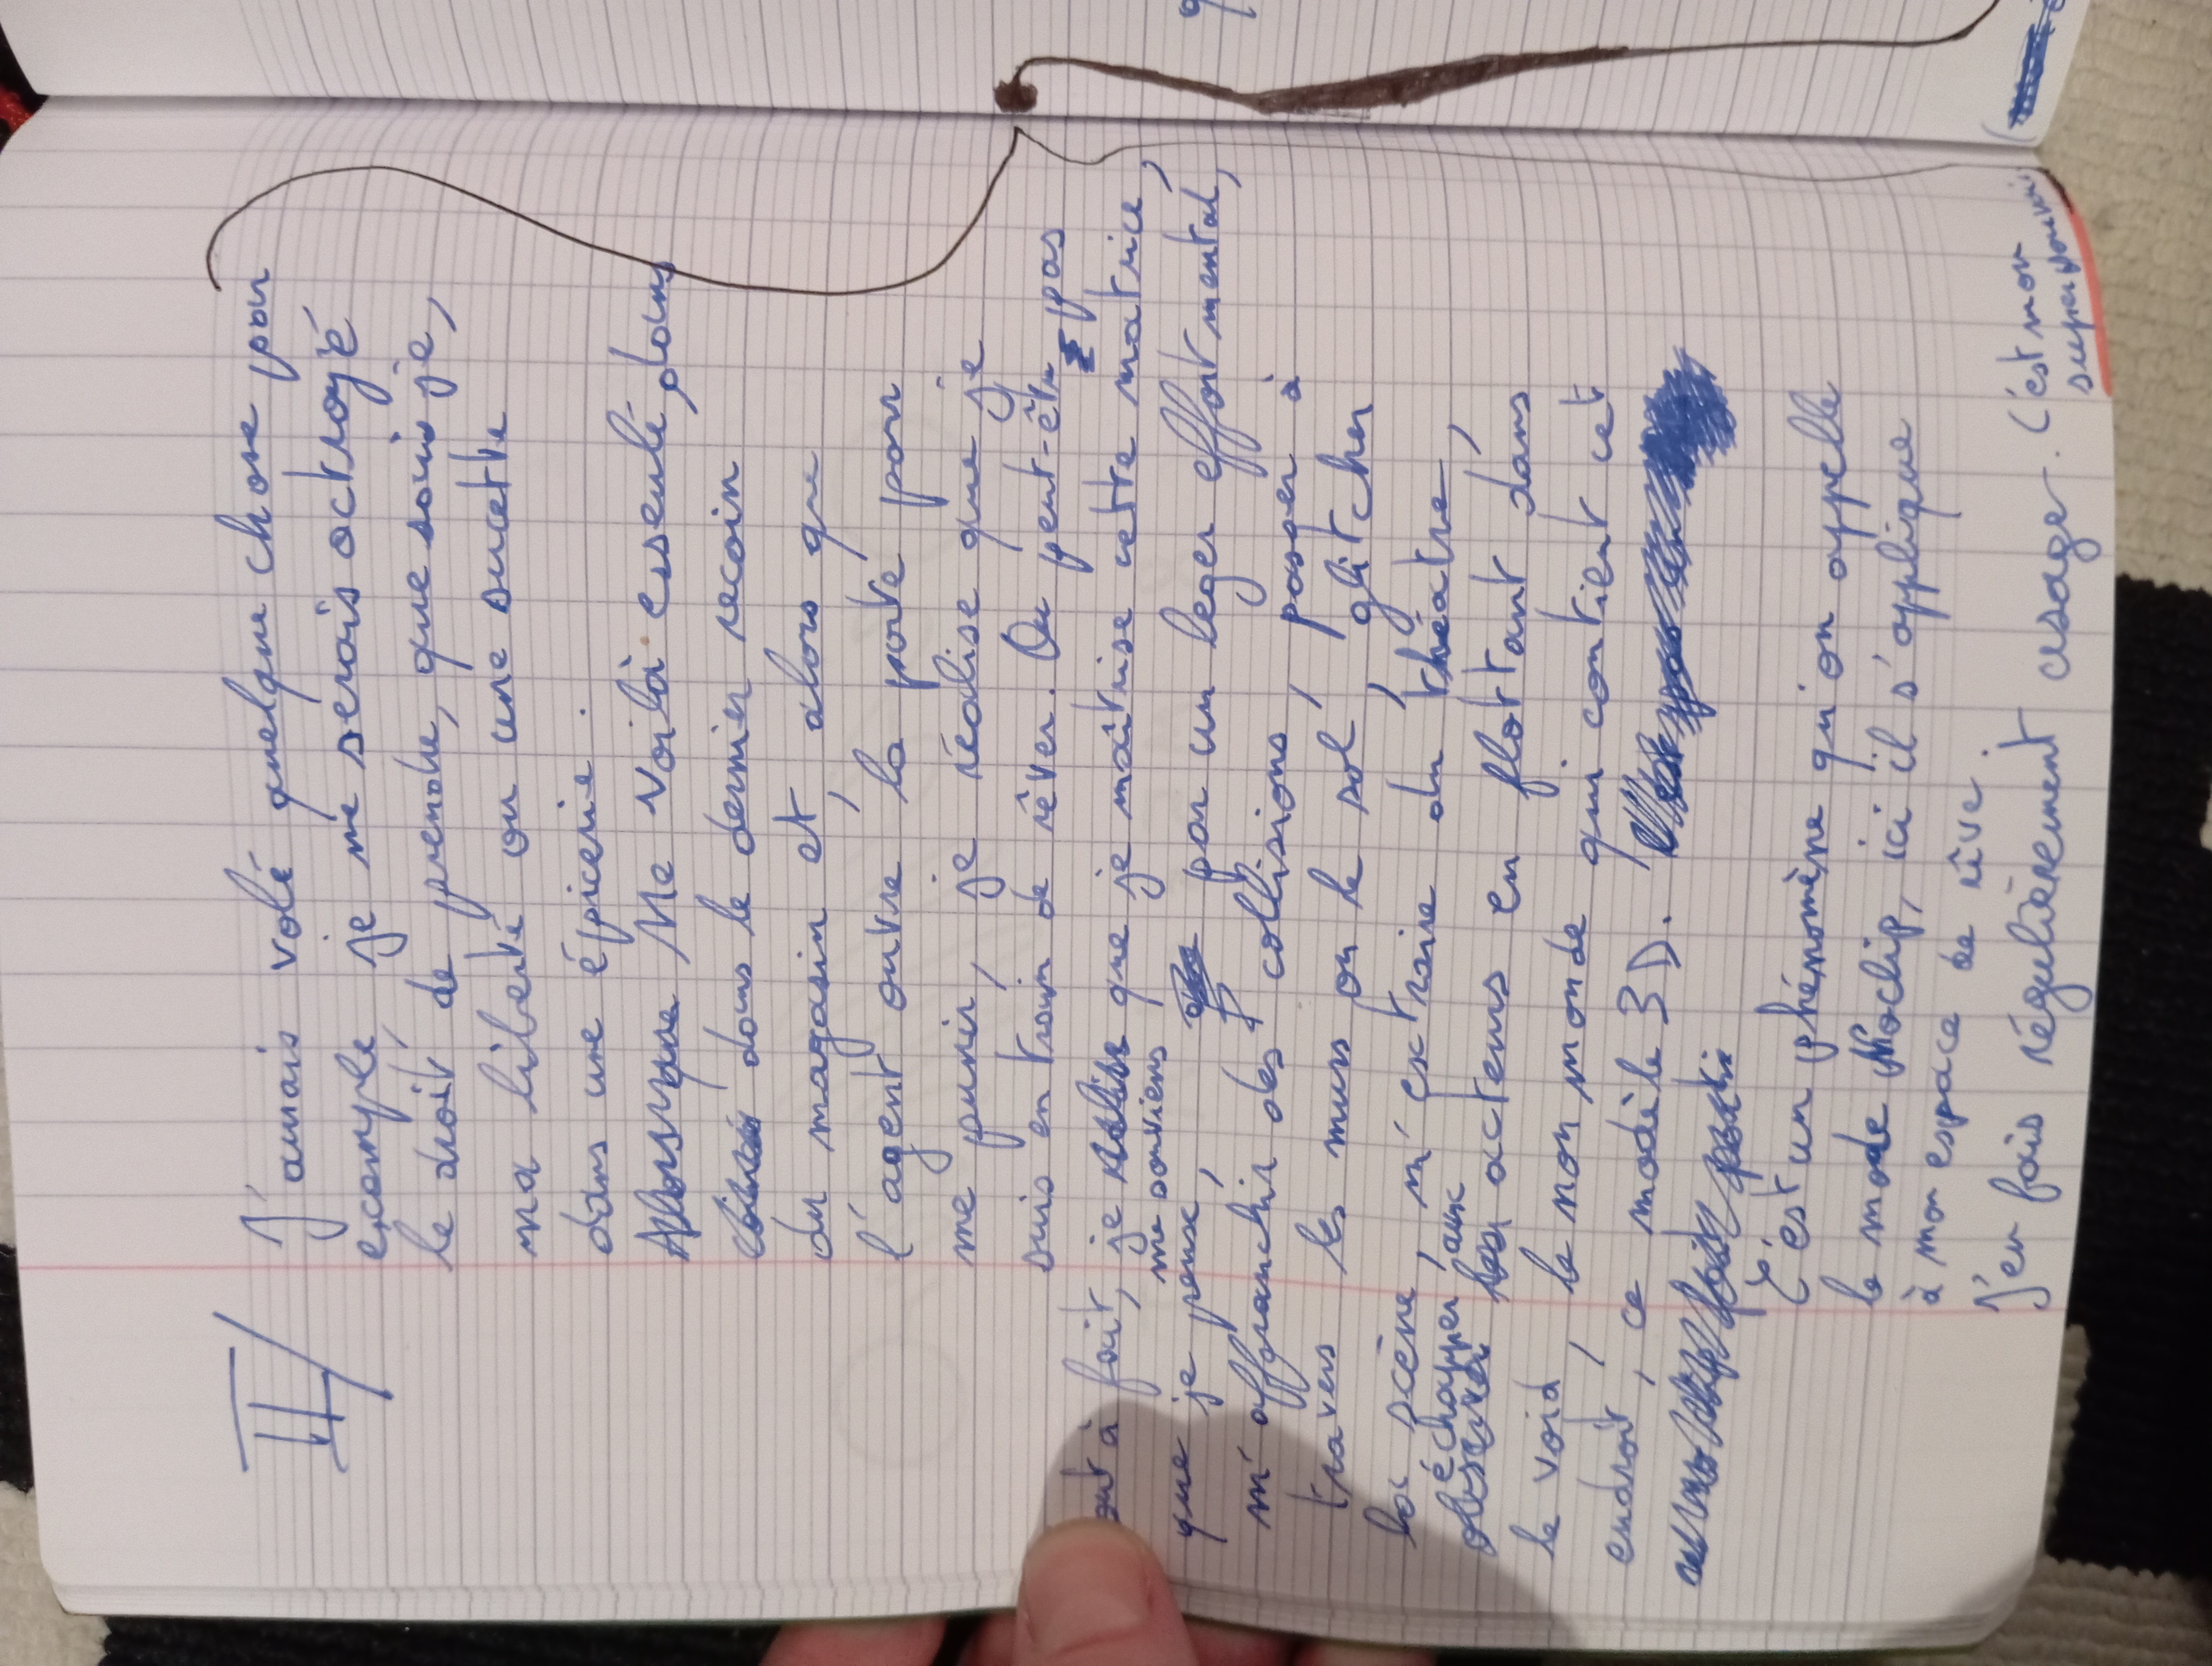 II/ J'aurais volé quelque chose par
exemple, je me serais octroyé
le droit de prendre, que sais je,
ma liberté ou une sucette
dans une épicerie.
Alors que Me Voilà esseulé, dans
dans le dernier recoin
du magasin et, alors que
l'agent ouvre la porte pour
me punir, je réalise que je
suis en train de rêver. Ou peut-être pas
out à fait, je réalise que je maîtrise cette matrice,
me souviens
que je peux, par un leger effort mental,
m'affranchir des collisions, passer à
travers les murs ou le sol, glitcher
la scène, m'extraire du théatre,
échapper aux
observer les acteurs en flottant dans
le void, le non monde qui contient cet
endroit, ce modèle 3D.
fait partie
C'est un phénomène qu'on appelle
le mode Noclip, ici il s'applique
à mon espace de rêve.
J'en fais régulièrement usage. C'est mon
super pouvoir